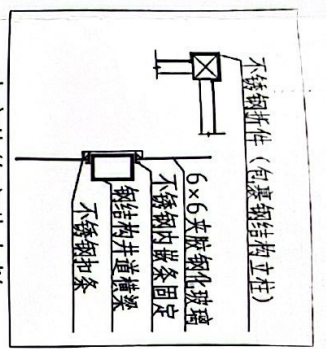 不锈钢折件（包裹钢结构立柱）
6×6夹胶钢化玻璃
不锈钢内嵌条固定
钢结构井道横梁
不锈钢扣条